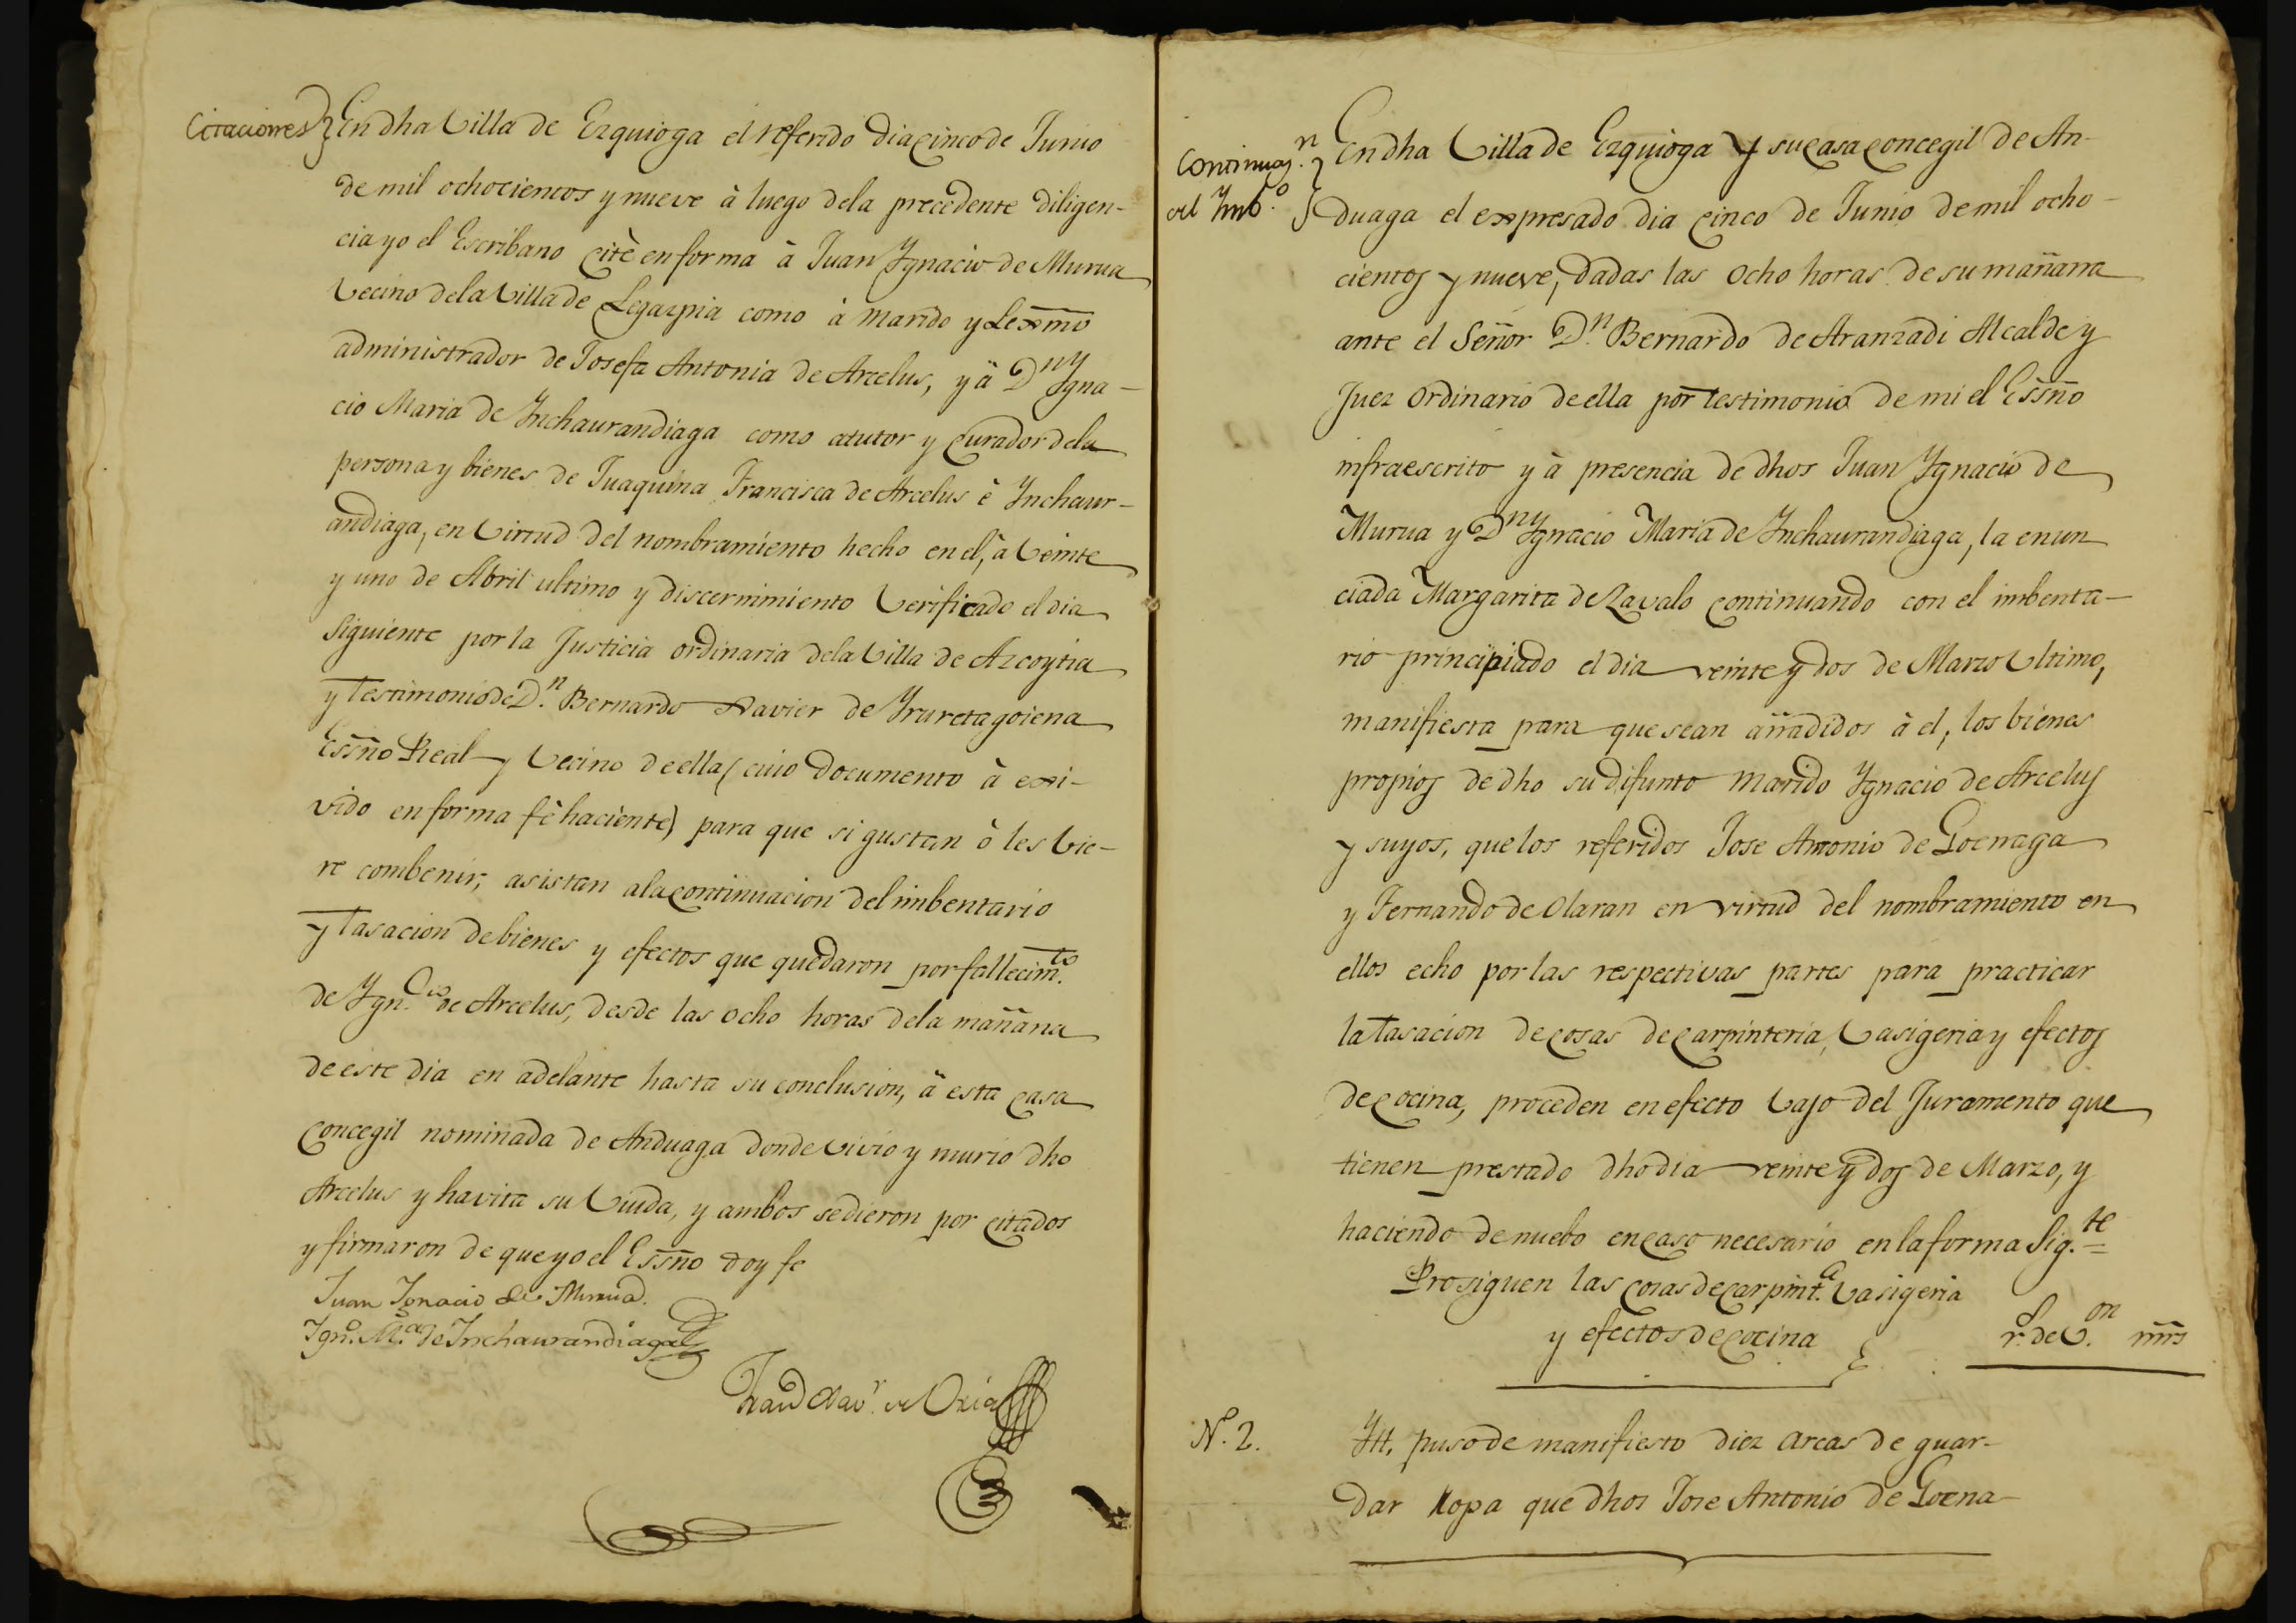 Citaciones } En dha Villa de Ezquioga el referido dia cinco de Junio
de mil ochocientos y nueve à luego dela precedente diligen-
cia yo el Escribano citè en forma à Juan Ygnacio de Murua
Vecino dela Villa de Legazpia como à marido y Lexmo
administrador de Josefa Antonia de Arcelus, y à Dn Ygna-
cio Maria de Ynchaurandiaga como atutor y curador dela
persona y bienes de Juaquina Francisca de Arcelus è Ynchaur-
andiaga, en Virtud del nombramiento hecho en el, à Veinte
y uno de Abril ultimo y discernimiento Verificado el dia
siguiente por la Justicia ordinaria dela Villa de Azcoytia
y Testimonio de Dn. Bernardo Xavier de Yruretagoiena
Essño Real y Vecino de ella (cuio documento à exi-
vido en forma fè haciente) para que si gustan ò les Vie-
re combenir, asistan ala continuacion del imbentario
y Tasacion de bienes y efectos que quedaron por fallecimto.
de Ygn.cio de Arcelus, desde las ocho horas dela mañana
de este dia en adelante hasta su conclusion, à esta casa
concegil nominada de Anduaga donde Vivio y murio dho
Arcelus y havita su Viuda, y ambos se dieron por citados
y firmaron de que yo el Essño doy fe
Juan Ygnacio de Murua.
Ygno. Ma. de Ynchaurandiaga
Xavr. de Oria
Continuazn. del Ymbo. } En dha Villa de Ezquioga y su casa concegil de An-
duaga el expresado dia cinco de Junio de mil ocho-
cientos y nueve, dadas las ocho horas de su mañana
ante el Señor Dn. Bernardo de Aranzadi Alcalde y
Juez ordinario de ella por testimonio de mi el Essño
infraescrito y à presencia de dhos Juan Ygnacio de
Murua y Dn Ygnacio Maria de Ynchaurandiaga, la enun
ciada Margarita de Zavalo continuando con el imbenta-
rio principiado el dia veinte y dos de Marzo Ultimo,
manifiesta para que sean añadidos à el, los bienes
propios de dho su difunto marido Ygnacio de Arcelus
y suyos, que los referidos Jose Antonio de Goenaga
y Fernando de Olaran en virtud del nombramiento en
ellos echo por las respectivas partes para practicar
la Tasacion de cosas de carpinteria, Vasigeria y efectos
de cocina, proceden en efecto Vajo del Juramento que
tienen prestado dho dia veinte y dos de Marzo, y
haciendo de nuebo en caso necesario en la forma sig.te =
Prosiguen las cosas de carpint.a Vasigeria
y efectos de cocina } rs. de Von. mrs
No. 2. Ytt. puso de manifiesto diez arcas de guar-
dar Ropa que dhos Jose Antonio de Goena-